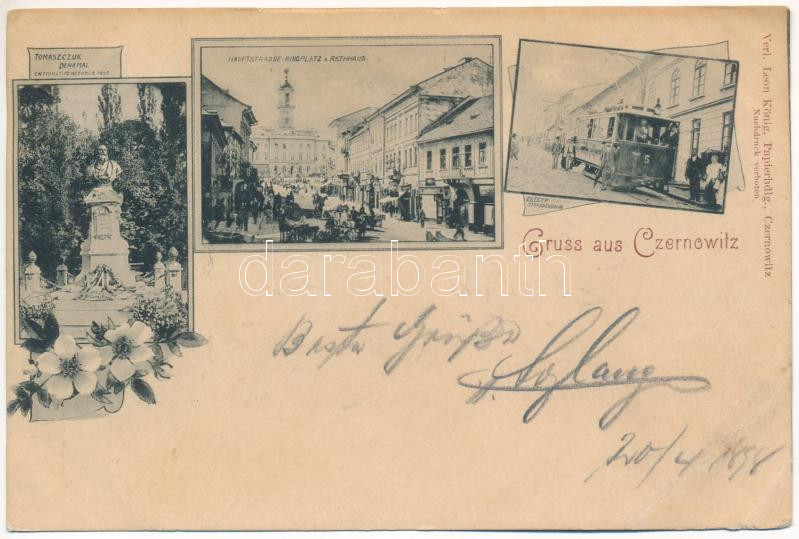 TOMASZCZUK
DENKMAL
HAUPTSTRASSE-RINGPLATZ & RATHHAUS.
5
ELECTR.
STRASSENBAHN
Gruss aus Czernowitz
Verl. Leon König, Papierhdlg., Czernowitz
Nachdruck verboten
darabanth
Beste Grüße
20/4 1898